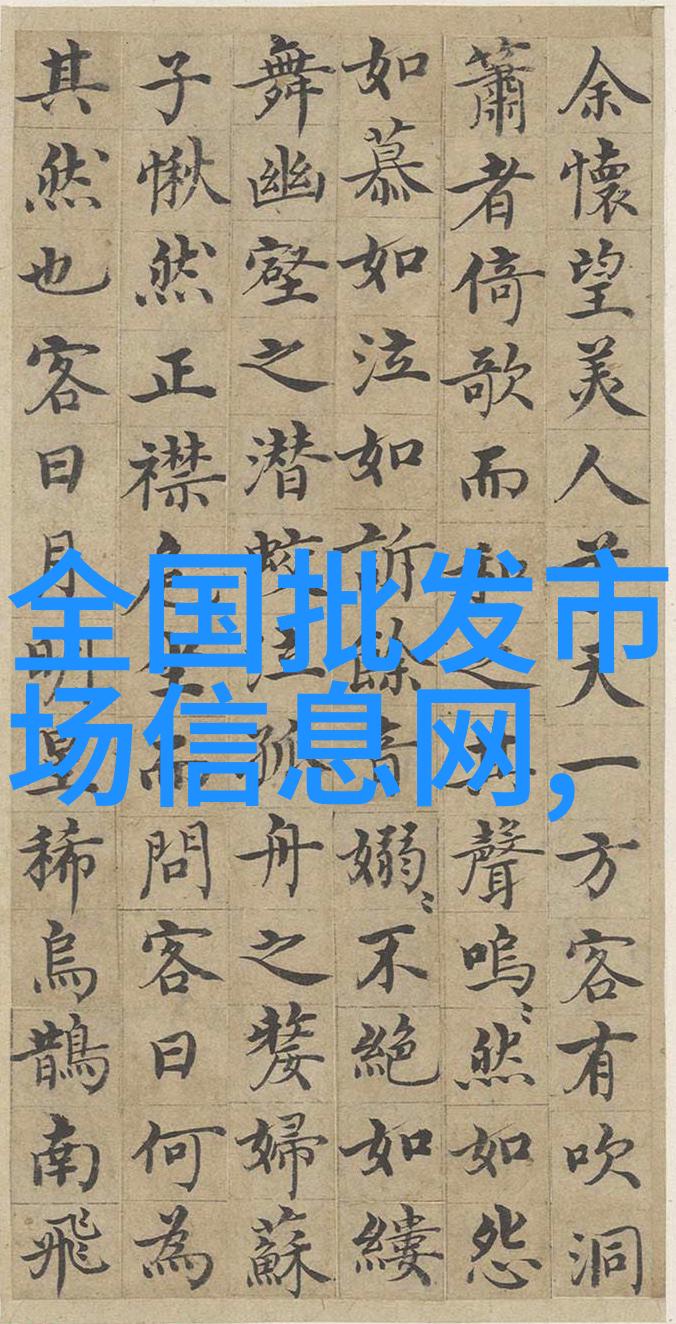 余懷望美人兮天一方客有吹洞
簫者倚歌而和之其聲嗚〻然如怨
如慕如泣如訴餘音嫋〻不絕如縷
舞幽壑之潛蛟泣孤舟之嫠婦蘇
子愀然正襟危坐而問客曰何為
其然也客曰月明星稀烏鵲南飛
全国批发市
场信息网,